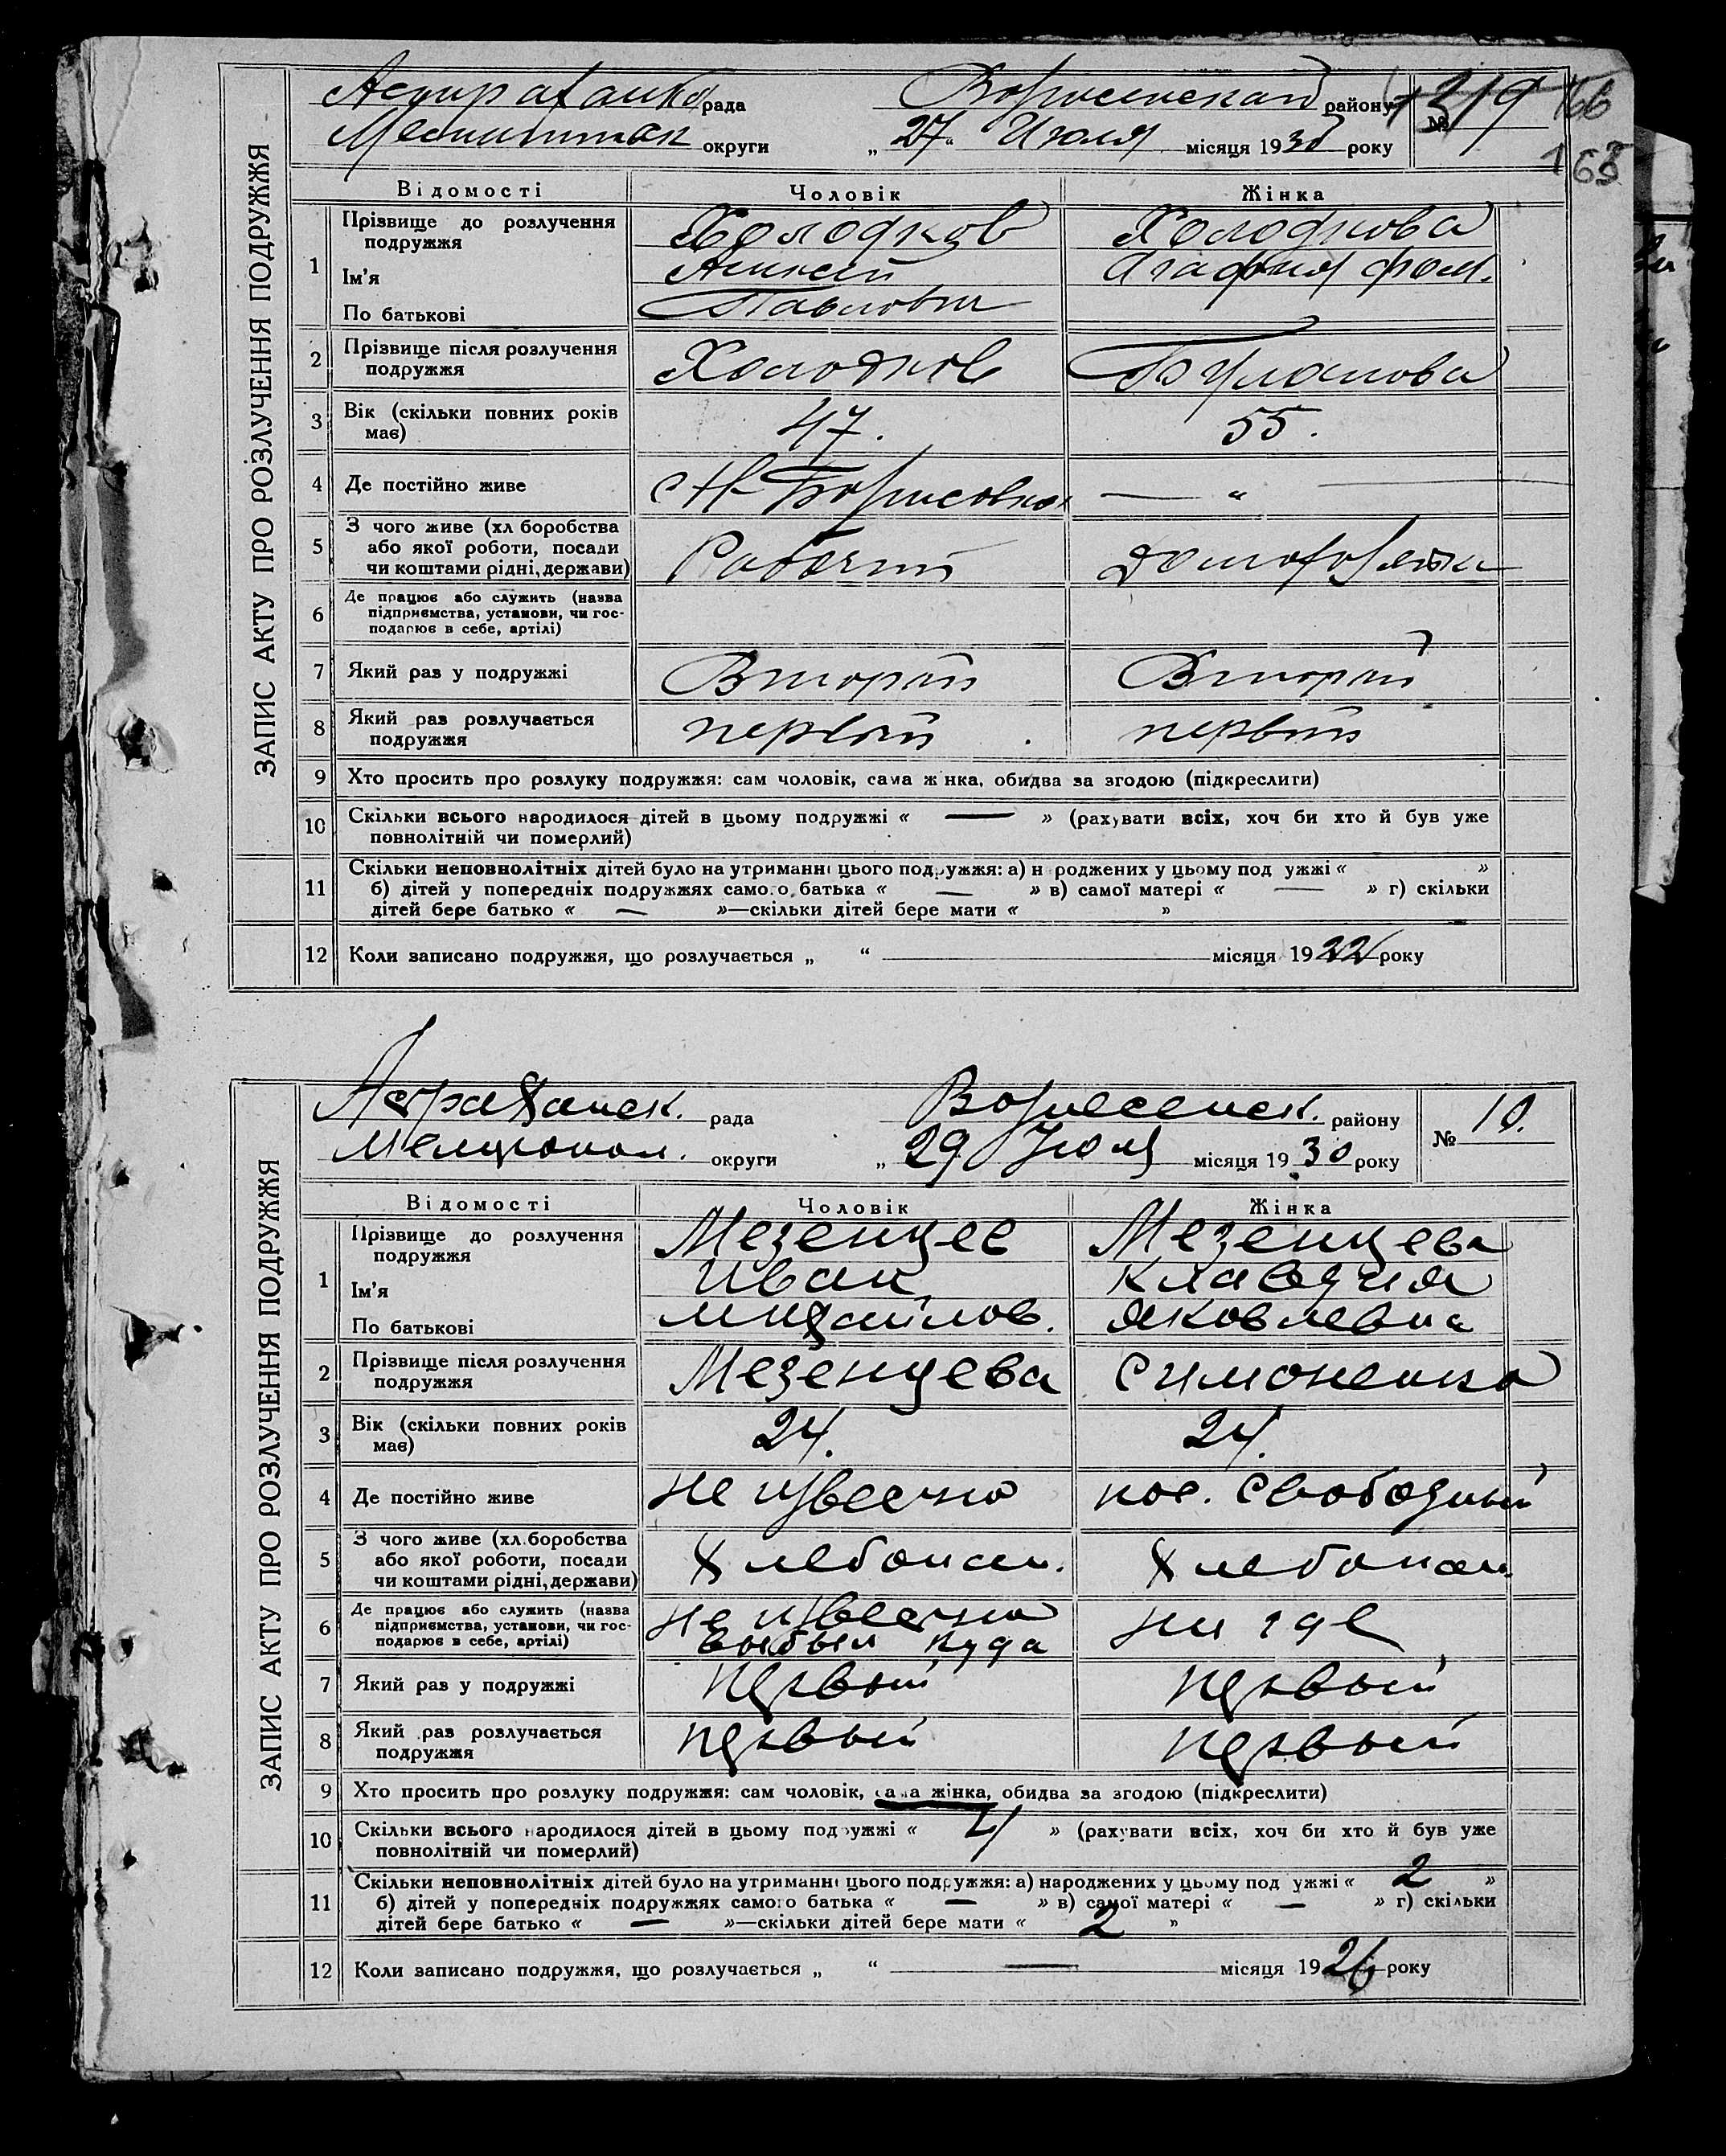 166
165
ЗАПИС АКТУ ПРО РОЗЛУЧЕННЯ ПОДРУЖЖЯ
рада районy № 9
округи „27“ Июля місяця 1930 року
Відомості Чоловік Жінка
1 Прізвище до розлучення подружжя Холодков Холодкова
Ім'я Алексей Агафия Фом.
По батькові Павлович
2 Прізвище після розлучення подружжя Холодков
3 Вік (скільки повних років має) 47. 55.
4 Де постійно живе с Н-Борисовка — „ —
5 З чого живе (хліборобства або якої роботи, посади чи коштами рідні, держави) Рабочий Домохозяйка
6 Де працює або служить (назва підприємства, установи, чи господарює в себе, артілі)
7 Який раз у подружжі Второй Второй
8 Який раз розлучається подружжя первый первый
9 Хто просить про розлуку подружжя: сам чоловік, сама жінка, обидва за згодою (підкреслити)
10 Скільки всього народилося дітей в цьому подружжі « — » (рахувати всіх, хоч би хто й був уже
повнолітній чи померлий)
11 Скільки неповнолітніх дітей було на утриманні цього подружжя: а) народжених у цьому подружжі « »
б) дітей у попередніх подружжях самого батька « — » в) самої матері « — » г) скільки
дітей бере батько « — »—скільки дітей бере мати « »
12 Коли записано подружжя, що розлучається „ “ — місяця 1922 року
ЗАПИС АКТУ ПРО РОЗЛУЧЕННЯ ПОДРУЖЖЯ
Астраханск. рада Вознесенск. району № 10.
Мелитопол. округи „29 Июля місяця 1930 року
Відомості Чоловік Жінка
1 Прізвище до розлучення подружжя Мезенцев Мезенцева
Ім'я Иван Клавдия
По батькові Михайлов. Яковлевна
2 Прізвище після розлучення подружжя Мезенцева Симоненко
3 Вік (скільки повних років має) 24. 24.
4 Де постійно живе не извесно пос. Свободный
5 З чого живе (хліборобства або якої роботи, посади чи коштами рідні, держави) Хлебопаш. Хлебопаш.
6 Де працює або служить (назва підприємства, установи, чи господарює в себе, артілі) не извесно выбыл куда ни где
7 Який раз у подружжі первый первый
8 Який раз розлучається подружжя первый первый
9 Хто просить про розлуку подружжя: сам чоловік, сама жінка, обидва за згодою (підкреслити)
10 Скільки всього народилося дітей в цьому подружжі « 4 » (рахувати всіх, хоч би хто й був уже
повнолітній чи померлий)
11 Скільки неповнолітніх дітей було на утриманні цього подружжя: а) народжених у цьому подружжі « 2 »
б) дітей у попередніх подружжях самого батька « — » в) самої матері « — » г) скільки
дітей бере батько « — »—скільки дітей бере мати « 2 »
12 Коли записано подружжя, що розлучається „ “ — місяця 1926 року